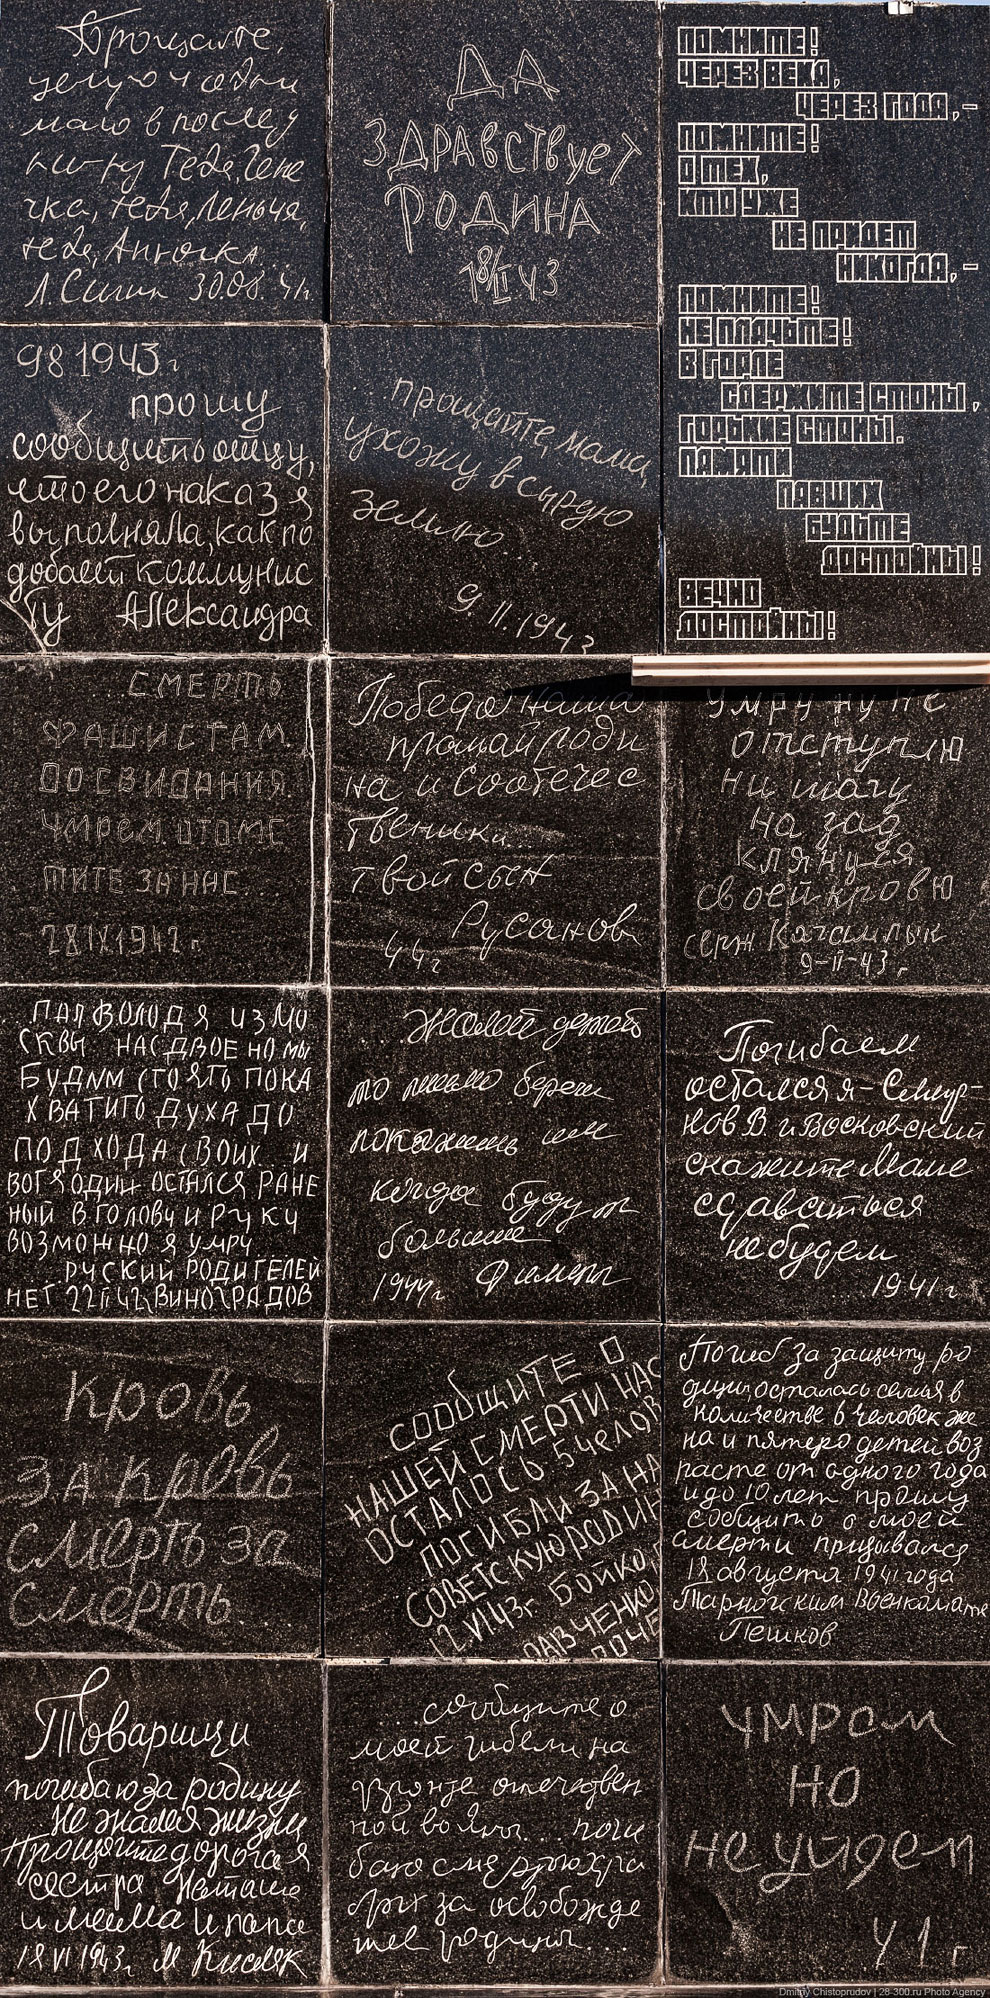 Прощайте,
целую и обни
маю в послед
ний раз Тебя, Гене
чка, тебя, Леньчя,
тебя, Анночка...
30.08. 41г.
ДА
ЗДРАВСТВУЕТ
РОДИНА
18/II 43
ПОМНИТЕ!
ЧЕРЕЗ ВЕКА,
ЧЕРЕЗ ГОДА,–
ПОМНИТЕ!
О ТЕХ,
КТО УЖЕ
НЕ ПРИДЕТ
НИКОГДА,–
ПОМНИТЕ!
НЕ ПЛАЧЬТЕ!
В ГОРЛЕ
СДЕРЖИТЕ СТОНЫ,
ГОРЬКИЕ СТОНЫ.
ПАМЯТИ
ПАВШИХ
БУДЬТЕ
ДОСТОЙНЫ!
ВЕЧНО
ДОСТОЙНЫ!
98 1943 г
прошу
сообщить отцу,
что его наказ я
выполняла, как по
добает коммунис
ту Александра
прощайте, мама,
ухожу в сырую
землю...
9 II. 1943
СМЕРТЬ
ФАШИСТАМ.
ДОСВИДАНИЯ.
УМРЕМ. ОТОМС
ТИТЕ ЗА НАС...
28 IX 1942 г.
Победа наша
прощай роди
на и соотечес
твеники...
твой сын
Русанов
44г
умру ну не
отступлю
ни шагу
на зад
клянуся
своей кровю
9-II-43 г
ПАЛ ВОЛОДЯ ИЗ МО
СКВЫ НАС ДВОЕ НО МЫ
БУДИМ СТОЯТЬ ПОКА
ХВАТИТЬ ДУХА ДО
ПОДХОДА СВОИХ И
ВОТ Я ОДИН ОСТАЛСЯ РАНЕ
НЫЙ В ГОЛОВУ И РУКУ
ВОЗМОЖНО Я УМРУ
РУСКИЙ РОДИТЕЛЕЙ
НЕТ 22 II 42г ВИНОГРАДОВ
...Жалей детей
то письмо береги
покажешь им
когда будут
больше
1944г.
Погибаем
остался я – Смир-
нов В. и Восковский
скажите маме
сдаваться
не будем
...1941 г
кровь
за кровь
смерть за
смерть.
СООБЩИТЕ О
НАШЕЙ СМЕРТИ НАС
ОСТАЛОСЬ 5 ЧЕЛОВ
ПОГИБЛИ ЗА НА
СОВЕТСКУЮ РОДИН
12.VI.43г. БОЙКО
САВЧЕНКО
ПОЧЕ
Погиб за защиту ро
дины, осталась семья в
количестве 6 человек же
на и пятеро детей воз
расте от одного года
и до 10 лет прошу
сообщить о моей
смерти призывался
18 августа 1941 года
Тарногским Военкоматом
Пешков
Товарищи
погибаю за родину
не жалея жизни
Прощайте дорогая
сестра Наташа
и мама и папа
18 VI 1943г М Кисляк
...сообщите о
моей гибели на
фронте отечествен
ной войны... поги
баю смертью хра
брых за освобожде
ние родины...
умрем
но
не уйдем
41 г
Dmitriy Chistoprudov | 28-300.ru Photo Agency